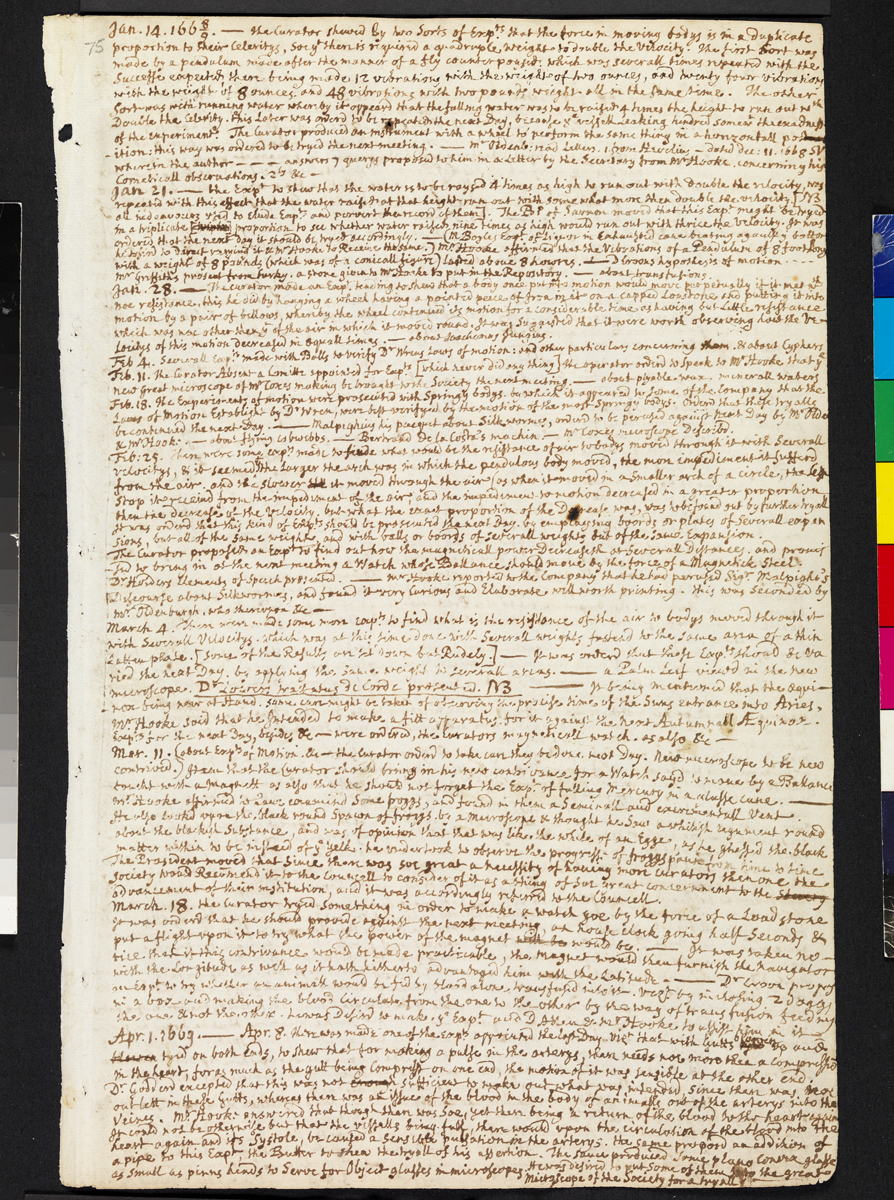 75
Jan. 14. 166 8/9. — the Curator shewed By two Sorts of Expts that the force in moving bodys is in a duplicate
proportion to their Celeritys, Soe yt there is required a quadruple weight to double the Velocity. The first Sort was
made by a pendulum made after the manner of a fly counterpoised, which was severall times repeated with the
Successe expected there being made 12 vibrations with the weight of two ounces, and twenty four vibrations
with the weight of 8 ounces, and 48 vibrations with two pounds weight all in the same time. The other
Sort was with running water wherby it appeard that the falling water was to be raised 4 times the height to run out wth
Double the Celerity. this Later was orderd to be repeated the next Day, because ye vessell Leaking hindred Somew the exactness
of the Experiment. The Curator produced an instrument with a wheel to perform the same thing in a horizontall pos-
ition: this way was ordered to be tryed the next meeting. — Mr Oldenb: read Letters. 1 from Hevelius — dated Dec: 11. 1668 SV
wherein the author — — — answers 7 querys proposed to him in a Letter by the Secretary from Mr Hooke, concerning his
Cometicall observations. 2ly &c —
Jan 21. — the Expt to shew that the water is to be raysd 4 times as high to run out with double the velocity, was
repeated with this effect that the water raised at that height run out with somewhat more then double the velocity. [NB
all indeavours used to elude Expts and pervert the record of them]. The Bp of Sarum moved that this Expt meght be tryed
in a triplicate proportion to see whether water raised nine times as high would run out with thrice the Velocity. It was
ordered that the next Day it should be tryed accordingly. — Mr Boyles Expt of Liquor in Exhausted
Mr Hooke affirmed that the Vibrations of a Pendulum of 8 foot Long
with a weight of 8 pounds (which was of a conicall figure) lasted about 8 howres. — Dr Croons hypothesis of motion - - - -
Mr Griffiths present from turky. a stone given to Mr Hooke to put in the Repository. — about transfusions.
Jan. 28. — The Curator made an Expt tending to shew that a body once put into motion would move perpetually if it met wth
noe resistance, this he did by hanging a wheel having a pointed peice of Iron in it on a capped Loadstone and putting it into
motion by a pair of bellows, wherby the wheel continued its motion for a considerable time as having but Little resistance
which was none other then yt of the air in which it moved round. It was Suggested that it were worth observing how the Ve-
locitys of this motion decreased in equall times. — about Joachimus Jungius.
Feb 4. Severall Expts made with Balls to verify Dr Wrens Laws of motion: and other particulars concerning them. & about Cyphers
Feb. 11. the Curator Absent a Comitte appointed for Expts [which never did any thing] the operator orderd to speak to Mr Hooke that ye
new Great microscope of Mr Coxes making be brought to the Society the next meeting. — about plyable wax. — minerall waters
Feb. 18. the Experiments of motion were prosecuted with Springy bodys. by which it appeared to some of the Company that the
Laws of Motion Establisht by Dr Wren, were best verifyed by the motion of the most Springy bodys. Orderd that these tryalls
be continued the next Day. — Malpighius his paquet about Silk wormes, orderd to be perused against next Day by Mr Olde
& Mr Hook: — about flying Cobwebbs. — Bertrand De la Costa's machin — Mr Coxes microscope Describd.
Feb: 25. There were some expts made to finde what would be the resistance of air to bodys moved through it with Severall
velocitys, & it seemed the Larger the arch was in which the pendulous body moved, the more impediment it Sufferd
from the air. and the slower it moved through the air (as when it moved in a Smaller arch of a circle, the less
Stop it received from the impediment of the air, and the impediment to motion decreased in a greater proportion
then the decrease of the velocity. but what the exact proportion of the Decrease was, was to be found out by further tryall
It was orderd that this kind of Expts should be prosecuted the next Day. by employing boords or plates of Severall expan
sions, but all of the same weight, and with balls or boords of severall weights but of the same Expansion.
The Curator proposed an Expt to find out how the magneticall power Decreaseth at Severall Distances. and promi
sed to bring in at the next meeting a Watch whose Ballance should move by the force of a Magnetick Steel.
Dr Holders Elements of Speech presented. — Mr Hooke reported to the Company that he had perused Sigr Malpighi's
Discourse about Silkwormes, and found it very Curious and Elaborate well worth printing. this was Seconded by
Mr Oldenburgh, who therupon &c —
March 4. There were made some more Expts to find what is the resistance of the air to bodys moved through it
with Severall Velocitys. which was at this time done with Severall weights fastend to the same area of a thin
Latten plate. [Some of the Results are set down but Rudely.] — It was orderd that these Expts should be va
ried the next Day. by applying the same weight to severall areas. — a Palm Leaf viewd in the new
microscope. Dr Lowers tractatus de Corde presented. NB — It being mentioned that the Equi-
nox being near at Hand, some care might be taken of observing the precise time of the Suns entrance into Aries,
Mr Hooke Said that he Intended to make a fitt apparatus for it against the next Autumnall Æquinox.
Expts for the next Day, besides &c — were ordered, the Curators magneticall watch. as also &c —
Mar. 11. (about Expts of Motion. &c — the Curator orderd to take care they be done next Day. New microscope to be new
contrived.) Item that the Curator should bring in his new contrivance for a Watch Sayd to move by a Ballance
toucht with a Magnett as also that he should not forget the Expt of falling Mercury in a glasse cane. —
Mr Hooke affirmed to have examind Some froggs, and found in them a Seminall and excrementall Vent.
He also Lookd upon the black round Spawn of froggs by a microscope & thought he Saw a whitish tegument round
about the blackish Substance, and was of opinion that that was like the white of an Egge, as he ghessed the black
matter within to be instead of ye yelk: he undertook to observe the progresse of froggs spawn from time to time
The President moved that Since there was soe great a necessity of having more curators then one the
Society would Recommend it to the Councell to consider of it as a thing of soe great concernment to the
advancement of their institution, and it was accordingly referred to the Councell.
March. 18. the Curator tryed something in order to make a watch goe by the force of a Loadstone
It was orderd that he should provide against the next meeting, an house clock going half Seconds &
put a flight upon it to try what the power of the magnet would be. — It was taken no-
tice that if this contrivance would be made practicable, the magnet would then furnish the navigator
with the Longitude as well as it hath hitherto advantaged him with the Latitude. — Dr Croon propos
an Expt to try whether an animall would be fed by blood alone, transfused into it. vizt by inclosing 2 Doggs
in a box and making the blood Circulate from the one to the other by the way of transfusion feeding
the one & not the other. he was Desird to make ye Expt and D Allen & Mr Hooke to assist him in it —
Apr. 1. 1669. — Apr. 8. there was made one of the Expts appointed the last Day. vizt that with Gutts blowen up and
tyed on both Ends, to shew that for making a pulse in the arterys, there needs noe more then a compression
in the heart, foras much as the gutt being Comprest on one end, the motion of it was sensible at the other end.
Dr Goddard excepted that this was not sufficient to make out what was intended, Since there was noe
out lett in these Gutts, whereas there was an issue of the blood in the body of an animall out of the arterys into the
Veines. Mr Hooke answered that though there was Soe, yet there being a return of the blood to the heart again
It could not be otherwise but that the vessells being full, there would upon the circulation of the blood into the
heart again and its Systole, be caused a sensible pulsation in the arterys. the same propos'd an addition of
a pipe to this Expt the better to shew the tryall of his assertion. The same produced Some plano Convex glasses
as small as pinns heads to Serve for Object glasses in microscopes. it was desired to put some of them into the great
Microscope of the Society for a tryall.